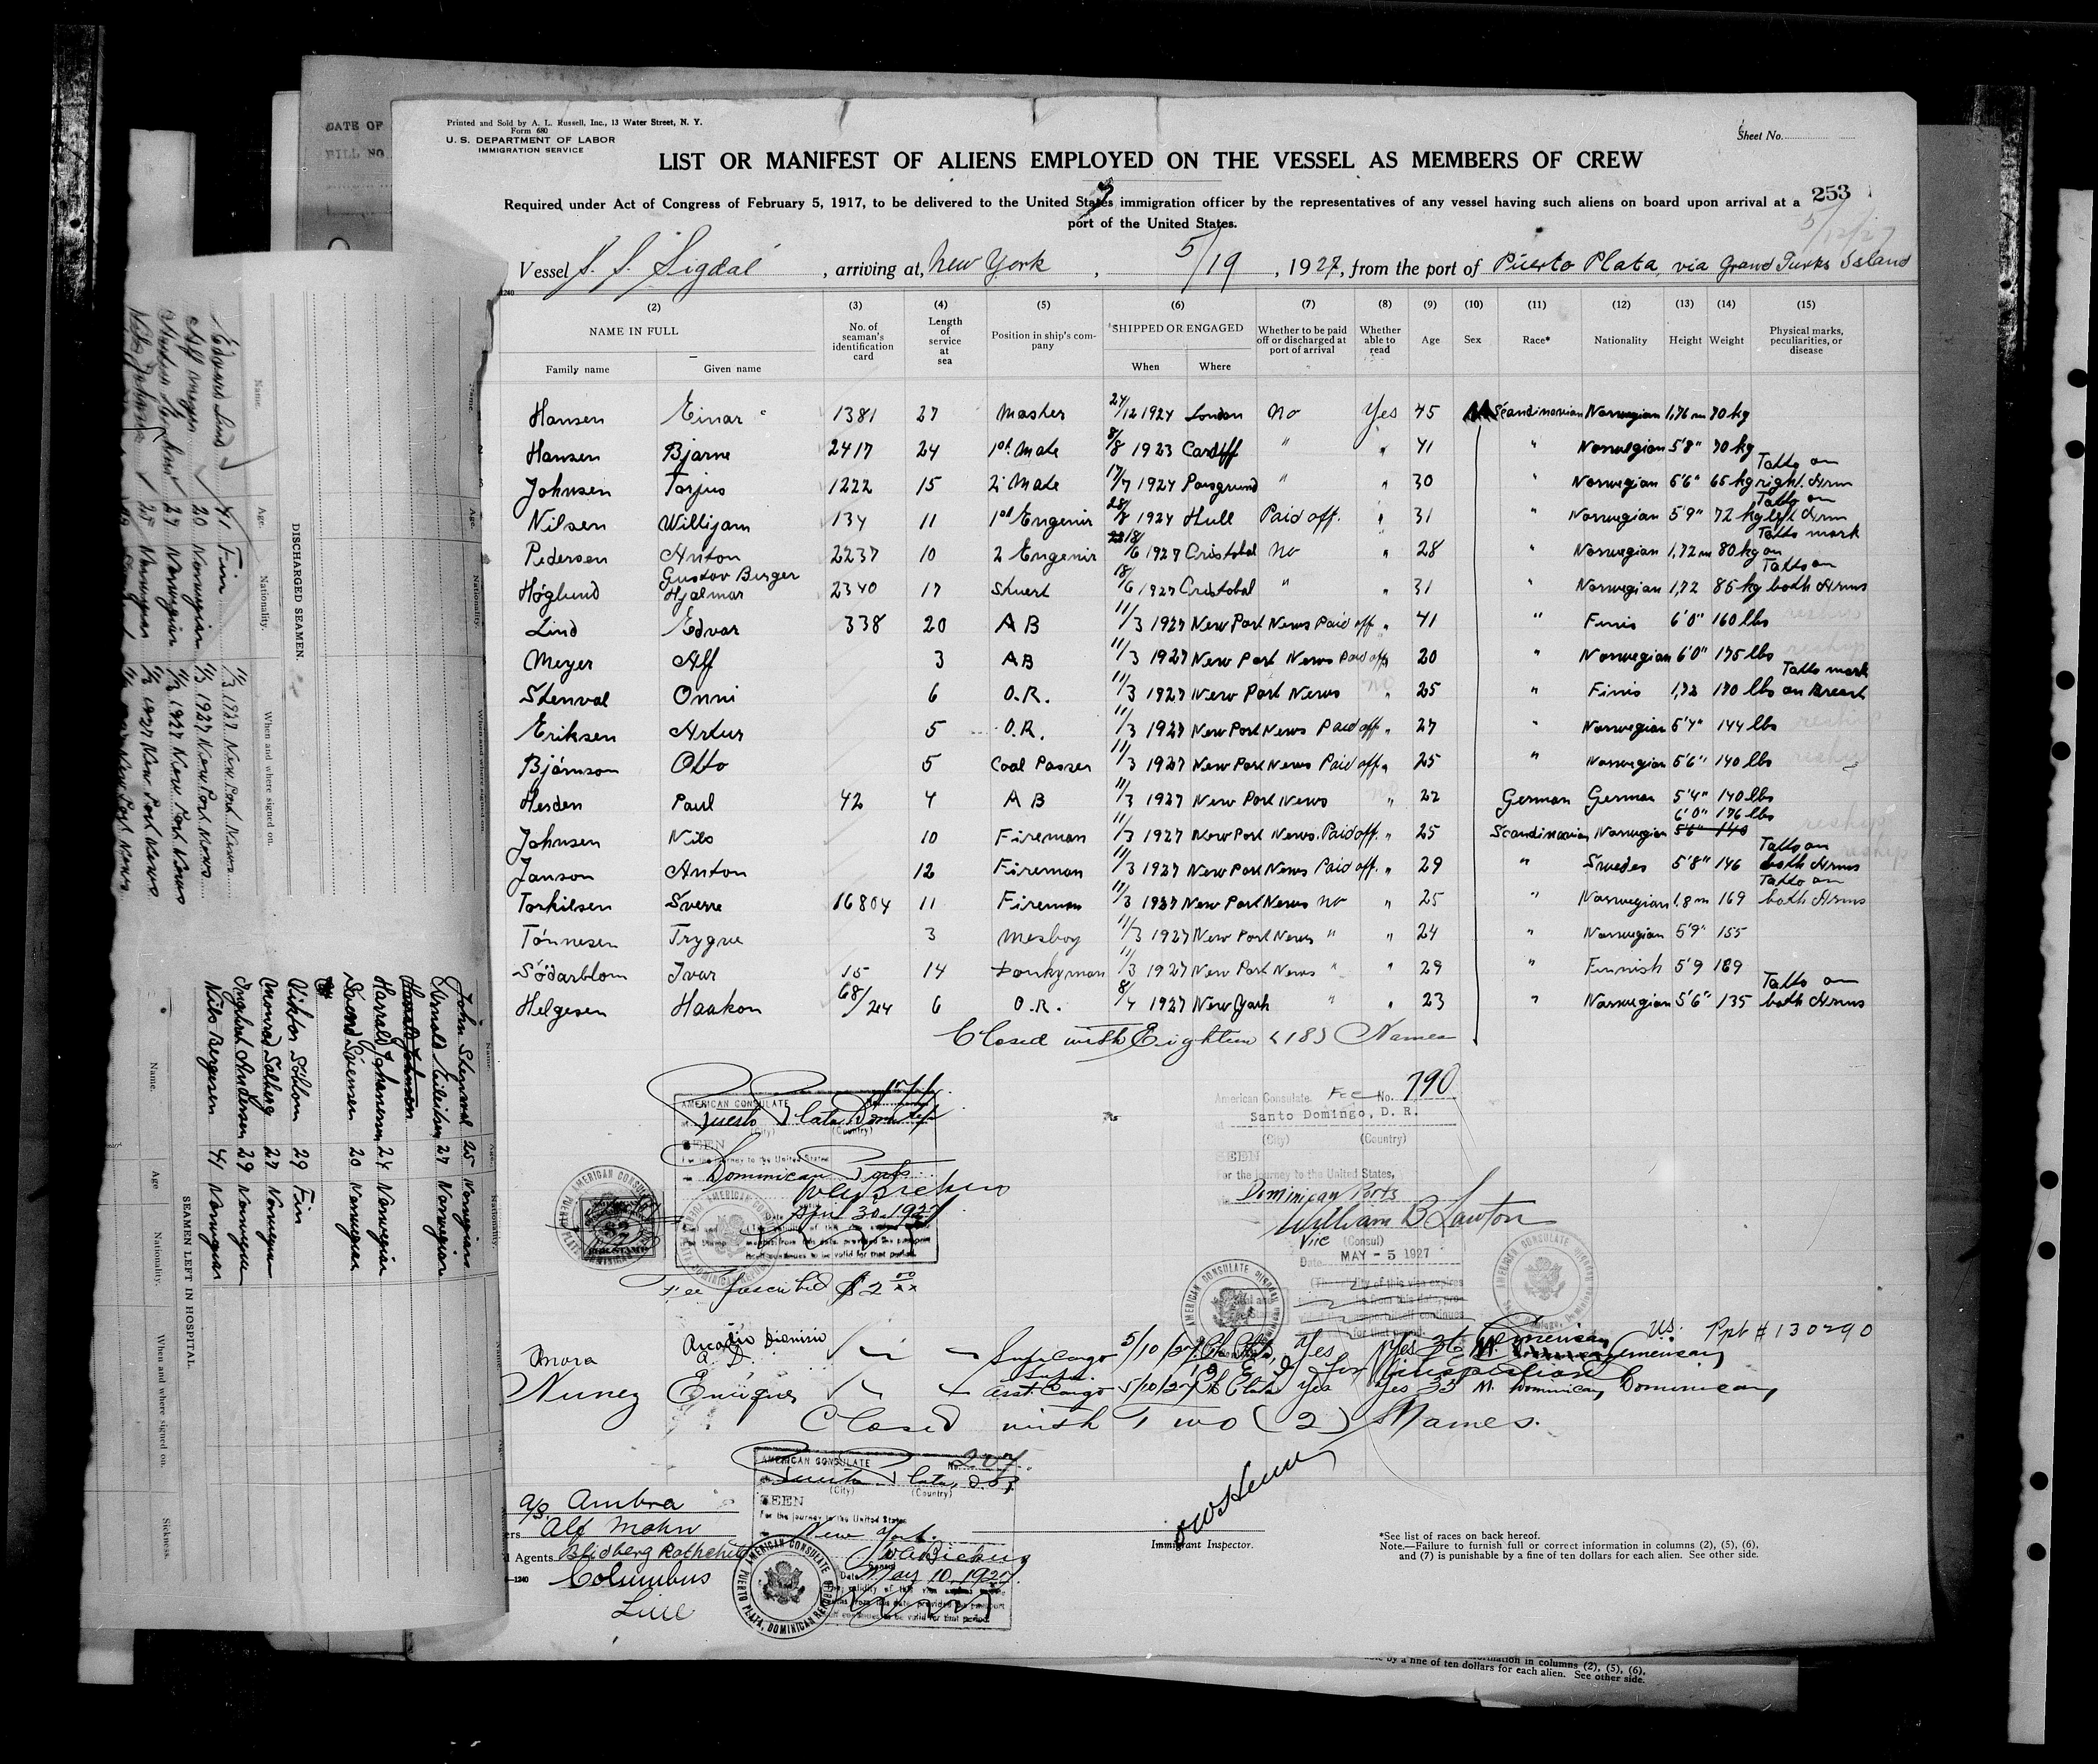 DATE OF
BILL NO
Printed and Sold by A. L. Russell, Inc., 13 Water Street, N. Y.
Form 680
U. S. DEPARTMENT OF LABOR
IMMIGRATION SERVICE
Sheet No.
LIST OR MANIFEST OF ALIENS EMPLOYED ON THE VESSEL AS MEMBERS OF CREW
253
Required under Act of Congress of February 5, 1917, to be delivered to the United States immigration officer by the representatives of any vessel having such aliens on board upon arrival at a
port of the United States.
5/12/27
Vessel S. S. Sigdal, arriving at New York, 5/19, 1927, from the port of Puerto Plata, via Grand Turks Island
1240
(2) (3) (4) (5) (6) (7) (8) (9) (10) (11) (12) (13) (14) (15)
NAME IN FULL No. of seaman's identification card Length of service at sea Position in ship's company SHIPPED OR ENGAGED Whether to be paid off or discharged at port of arrival Whether able to read Age Sex Race* Nationality Height Weight Physical marks, peculiarities, or disease
Family name Given name When Where
Hansen Einar 1381 27 Master 24/12 1924 London No Yes 45 M Scandinavian Norwegian 1,76 m 70 kg
Hansen Bjarne 2417 24 1st Mate 8/8 1923 Cardiff " " 41 " Norwegian 5'8" 70 kg
Johnsen Torjus 1222 15 2' Mate 17/7 1924 Porsgrund " " 30 " Norwegian 5'6" 65 kg Tatto on right. Arm
Nilsen Willijam 134 11 1st Engenir 28/8 1924 Hull Paid off. " 31 " Norwegian 5'9" 72 kg Tatto on left Arm
Pedersen Anton 2237 10 2 Engenir 18/6 1927 Cristobal No " 28 " Norwegian 1,72 m 80 kg Tatto mark on
Høglund Gustav Birger Hjalmar 2340 17 Stuert 18/6 1927 Cristobal " " 31 " Norwegian 1,72 86 kg Tatto on both Arms
Lind Edvar 338 20 A B 11/3 1927 New Port News Paid off " 41 " Finis 6'0" 160 lbs
Meyer Alf 3 AB 11/3 1927 New Port News Paid off " 20 " Norwegian 6'0" 175 lbs reship
Stenval Onni 6 O.R. 11/3 1927 New Port News no " 25 " Finis 1,72 170 lbs Tatto mark on Breast
Eriksen Artur 5 O.R. 11/3 1927 New Port News Paid off " 27 " Norwegian 5'7" 144 lbs reship
Bjørnson Otto 5 Coal Passer 11/3 1927 New Port News Paid off " 25 " Norwegian 5'6" 140 lbs reship
Herden Paul 42 4 A B 11/3 1927 New Port News no " 22 German German 5'4" 140 lbs
Johnsen Nils 10 Fireman 11/3 1927 New Port News. Paid off. " 25 Scandinavian Norwegian 6'0" 176 lbs 5'6" 140 reship
Janson Anton 12 Fireman 11/3 1927 New Port News Paid off. " 29 " Swedes 5'8" 146 Tatto on both Arms reship
Torkilsen Sverre 16804 11 Fireman 11/3 1927 New Port News no " 25 " Norwegian 1.8 m 169 Tatto on both Arms
Tønnesen Trygve 3 Mesboy 11/3 1927 New Port News " " 24 " Norwegian 5'9" 155
Södarblom Ivar 15 14 Donkyman 11/3 1927 New Port News " " 29 " Finnish 5'9 189
Helgesen Haakon 68/24 6 O.R. 8/4 1927 New York " " 23 " Norwegian 5'6" 135 Tatto on both Arms
Closed with Eighteen (18) Names
AMERICAN CONSULATE
Puerto Plata
(City) (Country)
SEEN
For the journey to the United States
Dominican Ports
Date April 30, 1927
Fee prescribed $2.00
American Consulate. Fee No. 790
at Santo Domingo, D. R.
(City) (Country)
SEEN
For the journey to the United States,
via Dominican Ports
William B Lawton
Vice (Consul)
Date MAY - 5 1927
(The validity of this visa expires
from this date, pro-
for that period.
Mora Arcadio Dionisio 5/10/27 Yes Yes American U.S. Ppt # 130290
A. D.
Nunez Enrique Asst. Cargo 5/10/27 Pt Plata Yes Yes 35 M. Dominican Dominican
Closed with Two (2) Names.
AMERICAN CONSULATE No. 207
Puerto Plata, D.R.
(City) (Country)
SEEN
For the journey to the United States
New York.
Date May 10, 1927
AMERICAN CONSULATE PUERTO PLATA, DOMINICAN REPUBLIC
a/s. Ambra
Alf Mohn
Agents Blidberg Rothchild
1240 Columbus
Line
Immigrant Inspector.
*See list of races on back hereof.
Note.—Failure to furnish full or correct information in columns (2), (5), (6),
and (7) is punishable by a fine of ten dollars for each alien. See other side.
by a fine of ten dollars for each alien. See other side.
DISCHARGED SEAMEN.
Name. Age. Nationality. When and where signed on.
Edvard Lind 41 Fin 11/3 1927 New Port News
Alf Meyer 20 Norwegian 11/3 1927 New Port News
27 Norwegian 11/3 1927 New Port News
25 Norwegian 11/3 1927 New Port News
SEAMEN LEFT IN HOSPITAL.
Name. Age Nationality. When and where signed on. Sickness.
John Stenval 25 Norwegian
Arnold Eilertsen 27 Norwegian
Harald Johansen
Harald Johanesen 24 Norwegian
20 Norwegian
Viktor Söblom 29 Fin
Monrad Solberg 27 Norwegian
Ingolart Andersen 29 Norwegian
Nils Bergesen 41 Norwegian